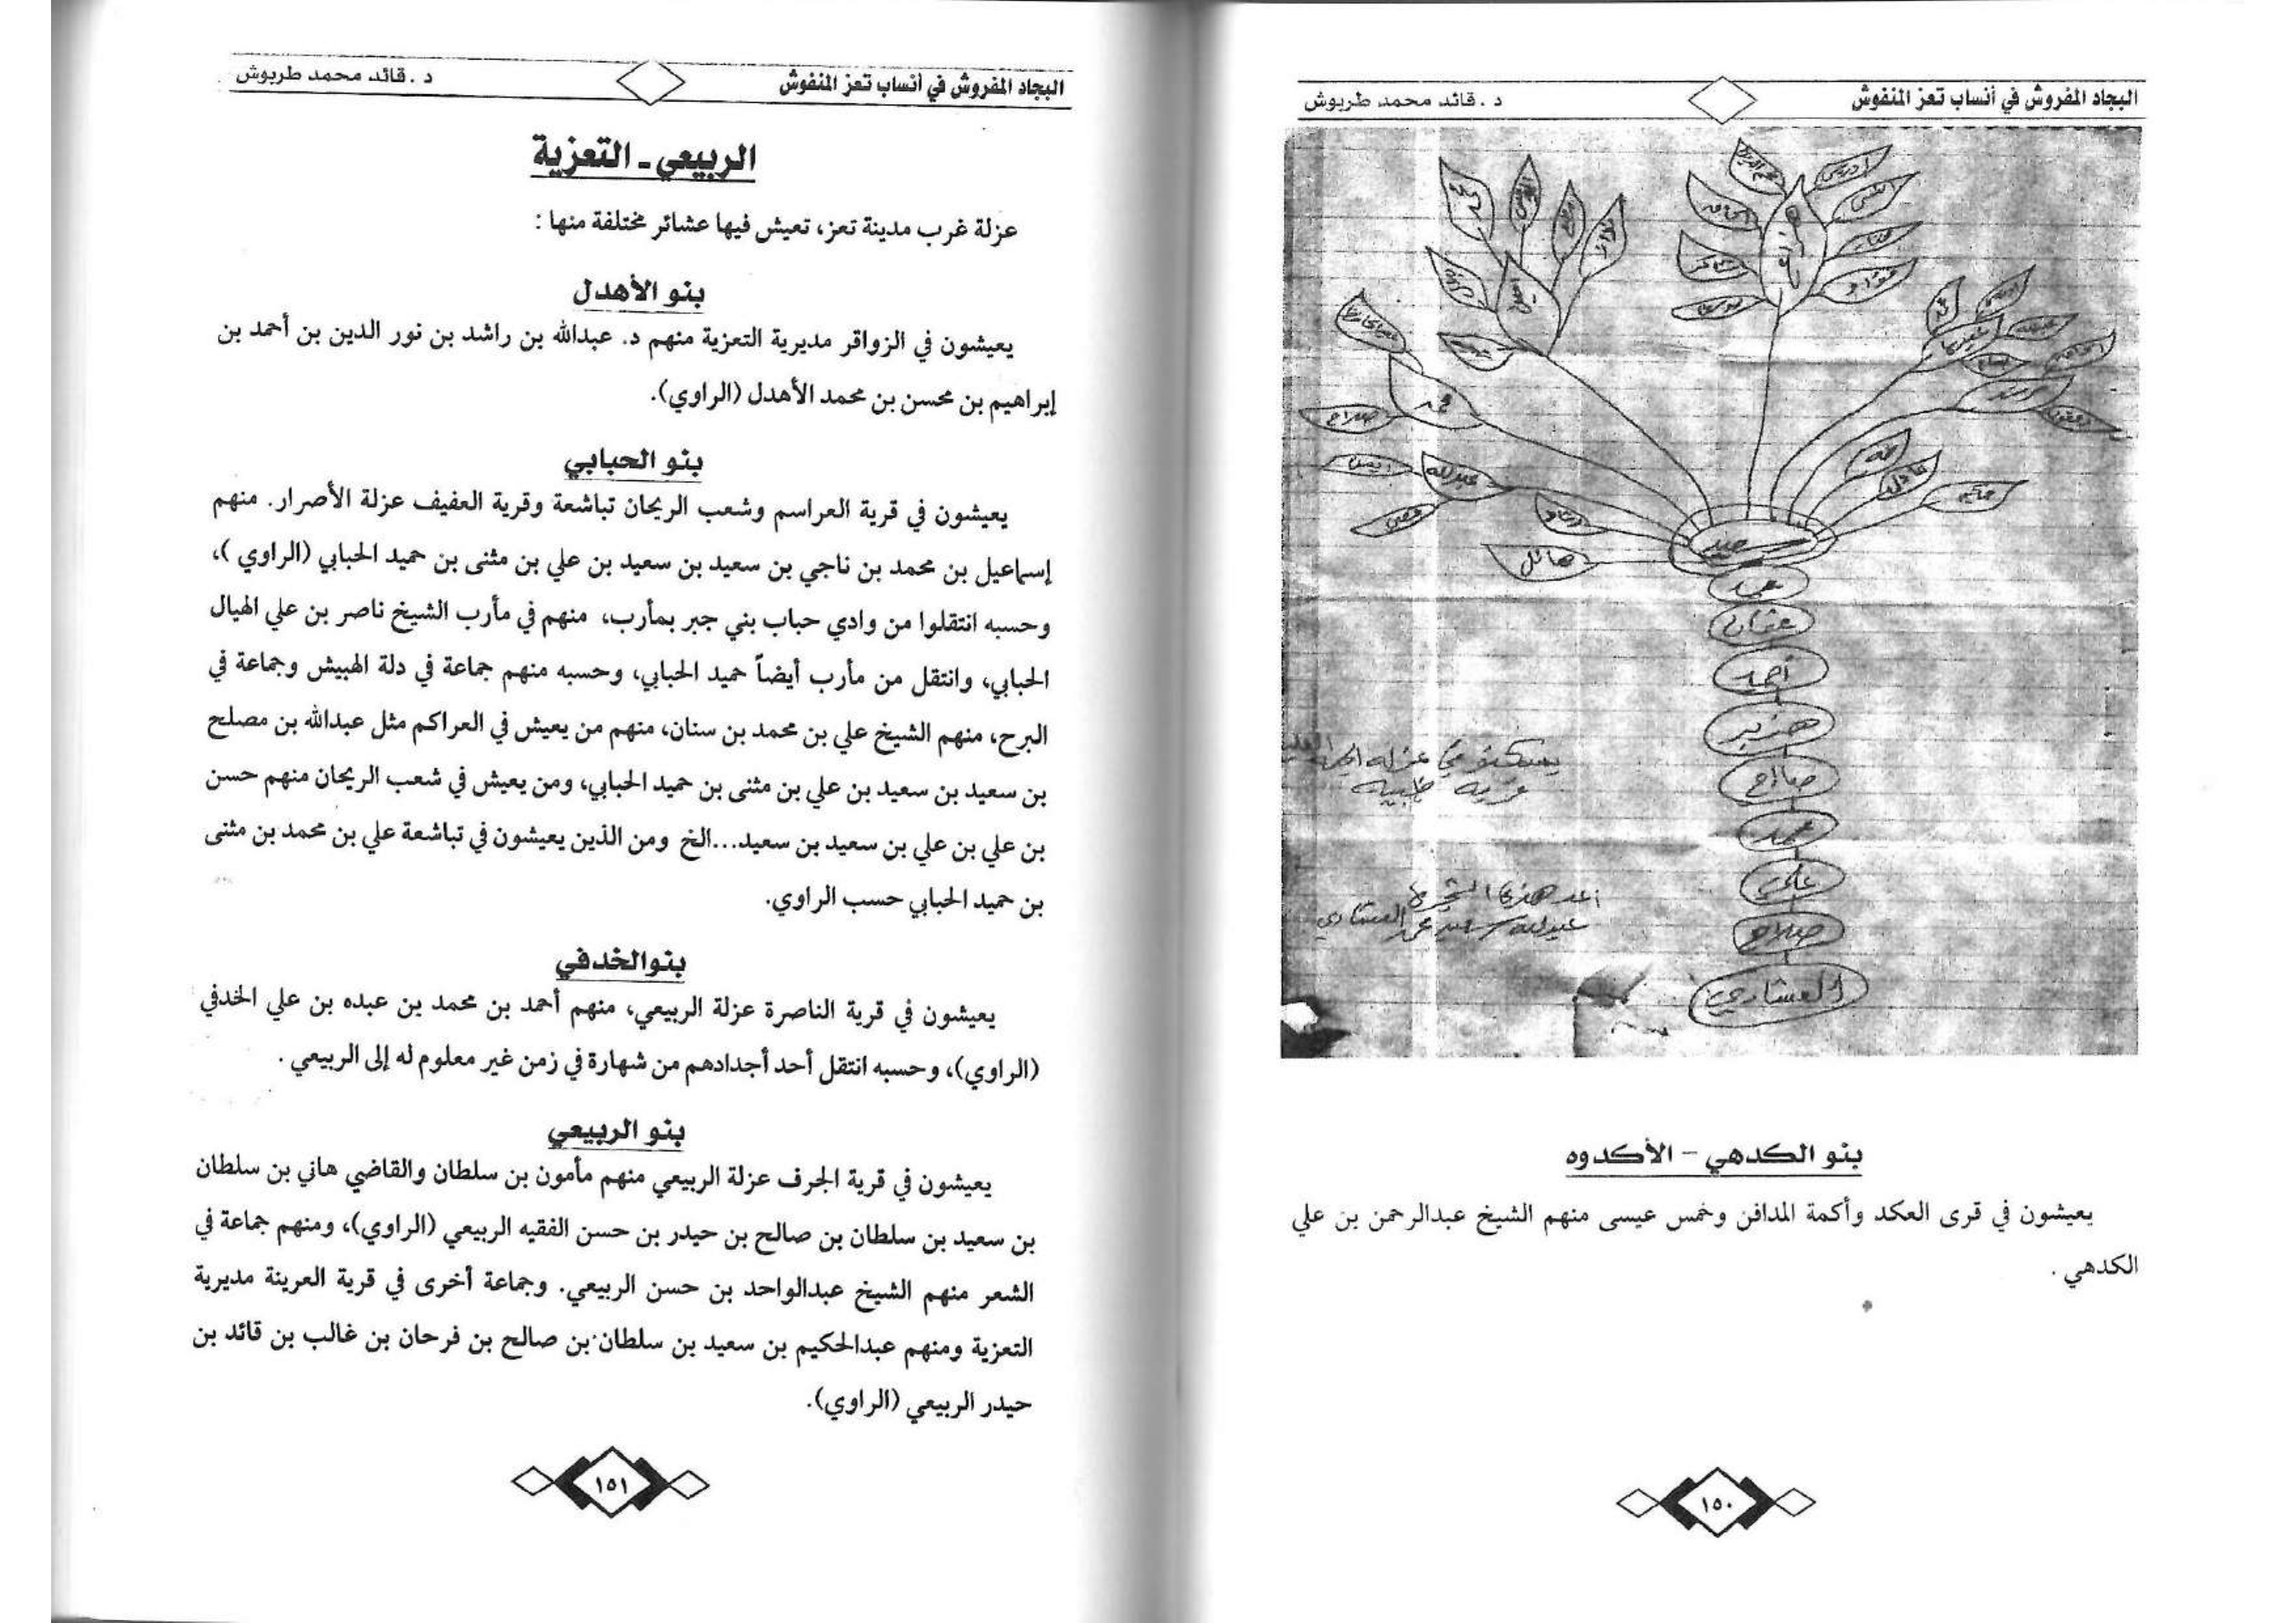 البجاد المفروش في أنساب تعز المنفوش
د. قائد محمد طربوش
إدريس
صلاح
محمد
عبدالله
عادل
هائل
سعيد
محمد
عثمان
أحمد
هزبر
صالح
محمد
علي
صلاح
العشاري
يسكنو في عزلة
قرية
اعد هذه الشجرة
عبدالله سعيد محمد العشاري
بنو الكدهي - الأكدوه
يعيشون في قرى العكد وأكمة المدافن وخمس عيسى منهم الشيخ عبدالرحمن بن علي
الكدهي.
١٥٠
البجاد المفروش في أنساب تعز المنفوش
د. قائد محمد طربوش
الربيعي - التعزية
عزلة غرب مدينة تعز، تعيش فيها عشائر مختلفة منها:
بنو الأهدل
يعيشون في الزواقر مديرية التعزية منهم د. عبدالله بن راشد بن نور الدين بن أحمد بن
إبراهيم بن محسن بن محمد الأهدل (الراوي).
بنو الحبابي
يعيشون في قرية العراسم وشعب الريحان تباشعة وقرية العفيف عزلة الأصرار. منهم
إسماعيل بن محمد بن ناجي بن سعيد بن سعيد بن علي بن مثنى بن حميد الحبابي (الراوي)،
وحسبه انتقلوا من وادي حباب بني جبر بمأرب، منهم في مأرب الشيخ ناصر بن علي الهيال
الحبابي، وانتقل من مأرب أيضاً حميد الحبابي، وحسبه منهم جماعة في دلة الهبيش وجماعة في
البرح، منهم الشيخ علي بن محمد بن سنان، منهم من يعيش في العراكم مثل عبدالله بن مصلح
بن سعيد بن سعيد بن علي بن مثنى بن حميد الحبابي، ومن يعيش في شعب الريحان منهم حسن
بن علي بن علي بن سعيد بن سعيد...الخ ومن الذين يعيشون في تباشعة علي بن محمد بن مثنى
بن حميد الحبابي حسب الراوي.
بنوالخدفي
يعيشون في قرية الناصرة عزلة الربيعي، منهم أحمد بن محمد بن عبده بن علي الخدفي
(الراوي)، وحسبه انتقل أحد أجدادهم من شهارة في زمن غير معلوم له إلى الربيعي.
بنو الربيعي
يعيشون في قرية الجرف عزلة الربيعي منهم مأمون بن سلطان والقاضي هاني بن سلطان
بن سعيد بن سلطان بن صالح بن حيدر بن حسن الفقيه الربيعي (الراوي)، ومنهم جماعة في
الشعر منهم الشيخ عبدالواحد بن حسن الربيعي. وجماعة أخرى في قرية العرينة مديرية
التعزية ومنهم عبدالحكيم بن سعيد بن سلطان بن صالح بن فرحان بن غالب بن قائد بن
حيدر الربيعي (الراوي).
١٥١